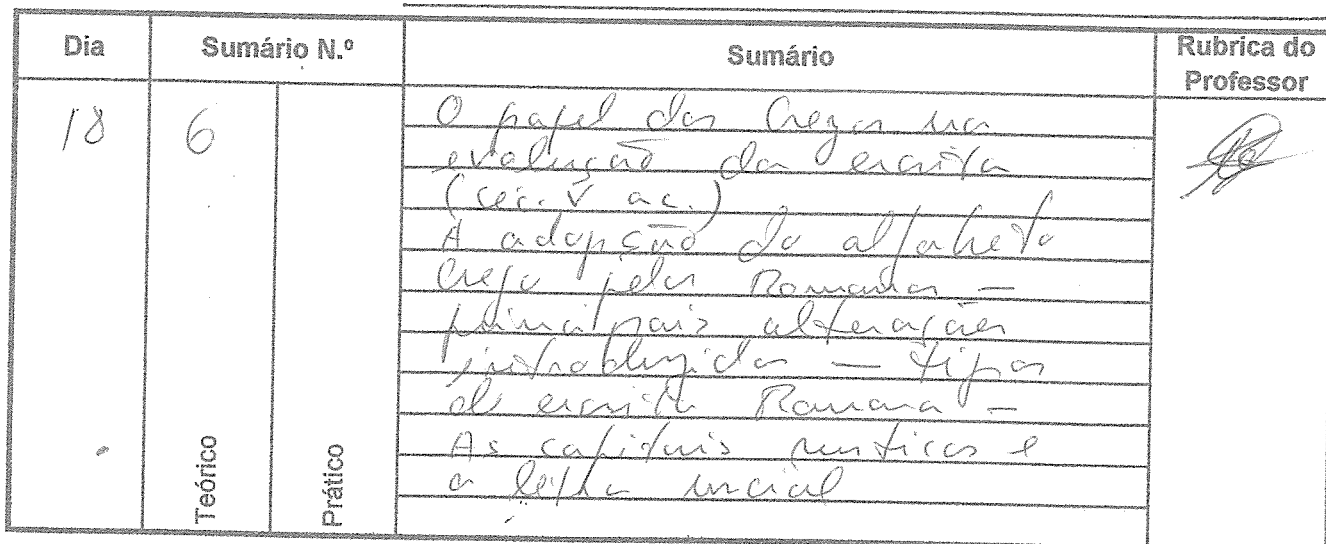 Dia Sumário N.º Sumário Rubrica do Professor
18 6 O papel dos Gregos na
evolução da escrita
(séc. V a c.)
A adopção do alfabeto
Grego pelos Romanos –
principais alterações
introduzidas – tipos
de escrita Romana –
As capitais rusticas e
a letra uncial
Teórico Prático